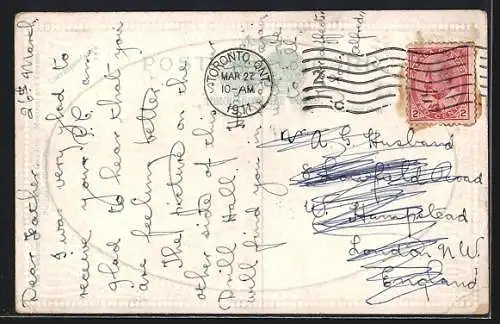 26th March,
Dear Father.
I was very glad to
receive your P.C. am
glad to hear that you
are feeling better.
The picture on the
other side of this is our
Drill Hall.
will find you in
POST CARD
TORONTO, ONT.
MAR 27
10-AM
1911
2 2
A. G. Husband
8 Road
W. Hampstead
London N.W.
England